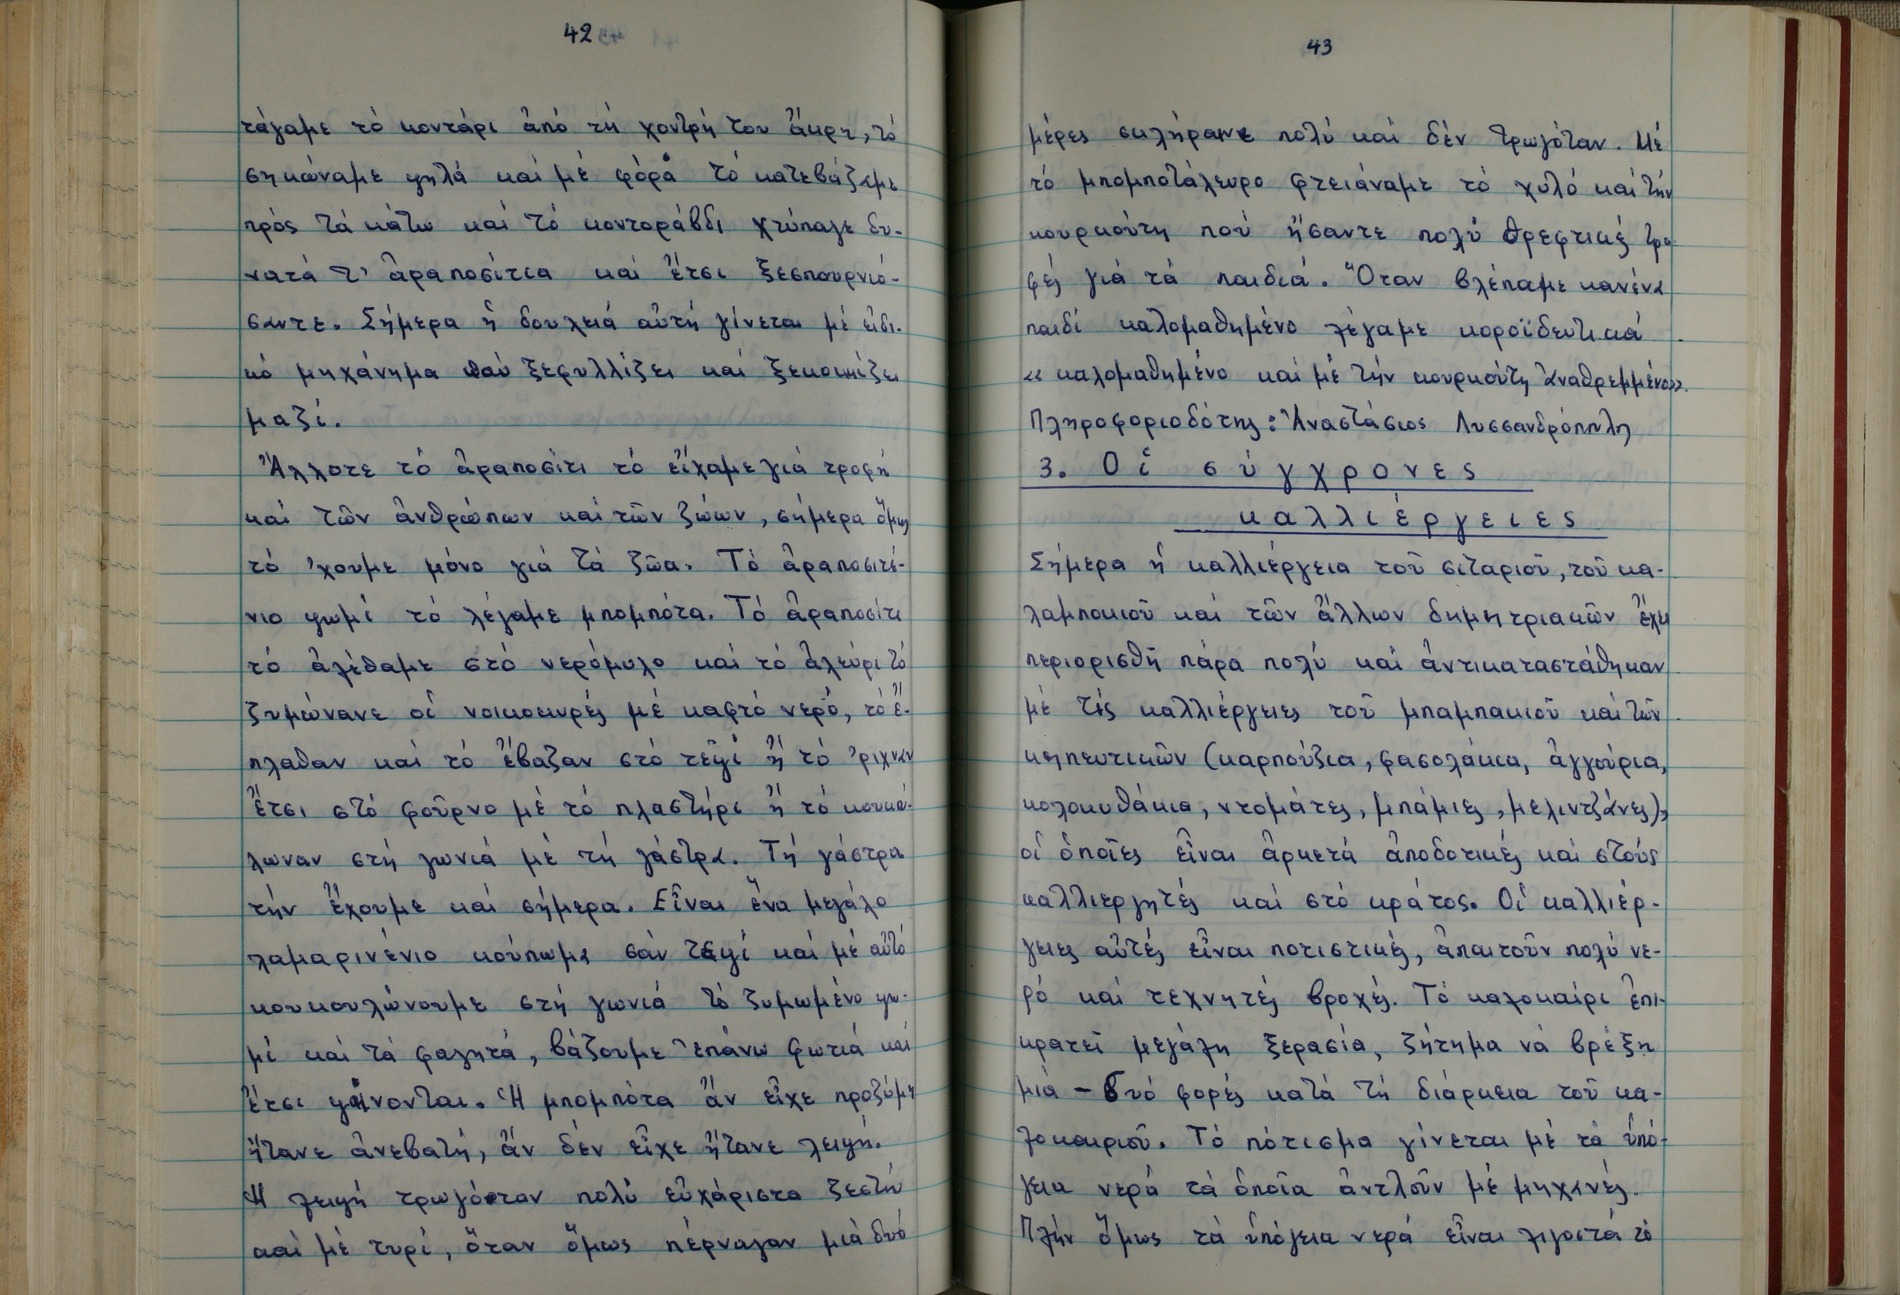 42
τάγαμε τό κοντάρι ἀπό τή χοντρή του ἄκρη, τό
σηκώναμε ψηλά καί μέ φόρα τό κατεβάζαμε
πρός τά κάτω καί τό κοντοράβδι χτύπαγε δυ-
νατά τ' ἀραποσίτια καί ἔτσι ξεσπουρνιό-
σαντε. Σήμερα ἡ δουλειά αὐτή γίνεται μέ εἰδι-
κό μηχάνημα πού ξεφυλλίζει καί ξεκοκκίζει
μαζί.
Ἄλλοτε τό ἀραποσίτι τό εἴχαμε γιά τροφή
καί τῶν ἀνθρώπων καί τῶν ζώων, σήμερα ὅμως
τό 'χουμε μόνο γιά τά ζῶα. Τό ἀραποσιτέ-
νιο ψωμί τό λέγαμε μπομπότα. Τό ἀραποσίτι
τό ἀλέθαμε στό νερόμυλο καί τό ἀλεύρι τό
ζυμώνανε οἱ νοικοκυρές μέ καφτό νερό, τό ἔ-
πλαθαν καί τό ἔβαζαν στό τεψί ἤ τό 'ριχναν
ἔτσι στό φοῦρνο μέ τό πλαστήρι ἤ τό κουκού-
λωναν στή γωνιά μέ τή γάστρα. Τή γάστρα
τήν ἔχουμε καί σήμερα. Εἶναι ἕνα μεγάλο
λαμαρινένιο κούπωμα σάν τεψί καί μέ αὐτό
κουκουλώνουμε στή γωνιά τό ζυμωμένο ψω-
μί καί τά φαγητά, βάζουμε ἐπάνω φωτιά καί
ἔτσι ψήνονται. Ἡ μπομπότα ἄν εἶχε προζύμι
ἤτανε ἀνεβατή, ἄν δέν εἶχε ἤτανε λειψή.
Ἡ λειψή τρωγόταν πολύ εὐχάριστα ζεστή
καί μέ τυρί, ὅταν ὅμως πέρναγαν μιά δυό
43
μέρες σκλήραινε πολύ καί δέν τρωγόταν. Μέ
τό μπομποτάλευρο φτειάναμε τό χυλό καί τήν
κουρκούτη πού ἤσαντε πολύ θρεφτικές τρο
φές γιά τά παιδιά. Ὅταν βλέπαμε κανένα
παιδί καλομαθημένο λέγαμε κοροϊδευτικά
« καλομαθημένο καί μέ τήν κουρκούτη ἀναθρεμμένο».
Πληροφοριοδότης: Ἀναστάσιος Λυσσανδρόπουλος
3. Οἱ σύγχρονες
καλλιέργειες
Σήμερα ἡ καλλιέργεια τοῦ σιταριοῦ, τοῦ κα-
λαμποκιοῦ καί τῶν ἄλλων δημητριακῶν ἔχει
περιορισθῆ πάρα πολύ καί ἀντικαταστάθηκαν
μέ τίς καλλιέργειες τοῦ μπαμπακιοῦ καί τῶν
κηπευτικῶν (καρπούζια, φασολάκια, ἀγγούρια,
κολοκυθάκια, ντομάτες, μπάμιες, μελιντζάνες),
οἱ ὁποῖες εἶναι ἀρκετά ἀποδοτικές καί στούς
καλλιεργητές καί στό κράτος. Οἱ καλλιέρ-
γειες αὐτές εἶναι ποτιστικές, ἀπαιτοῦν πολύ νε-
ρό καί τεχνητές βροχές. Τό καλοκαίρι ἐπι-
κρατεῖ μεγάλη ξερασία, ζήτημα νά βρέξη
μιά - δυό φορές κατά τή διάρκεια τοῦ κα-
λοκαιριοῦ. Τό πότισμα γίνεται μέ τά ὑπό-
γεια νερά τά ὁποῖα ἀντλοῦν μέ μηχανές.
Πλήν ὅμως τά ὑπόγεια νερά εἶναι λιγοστά τό